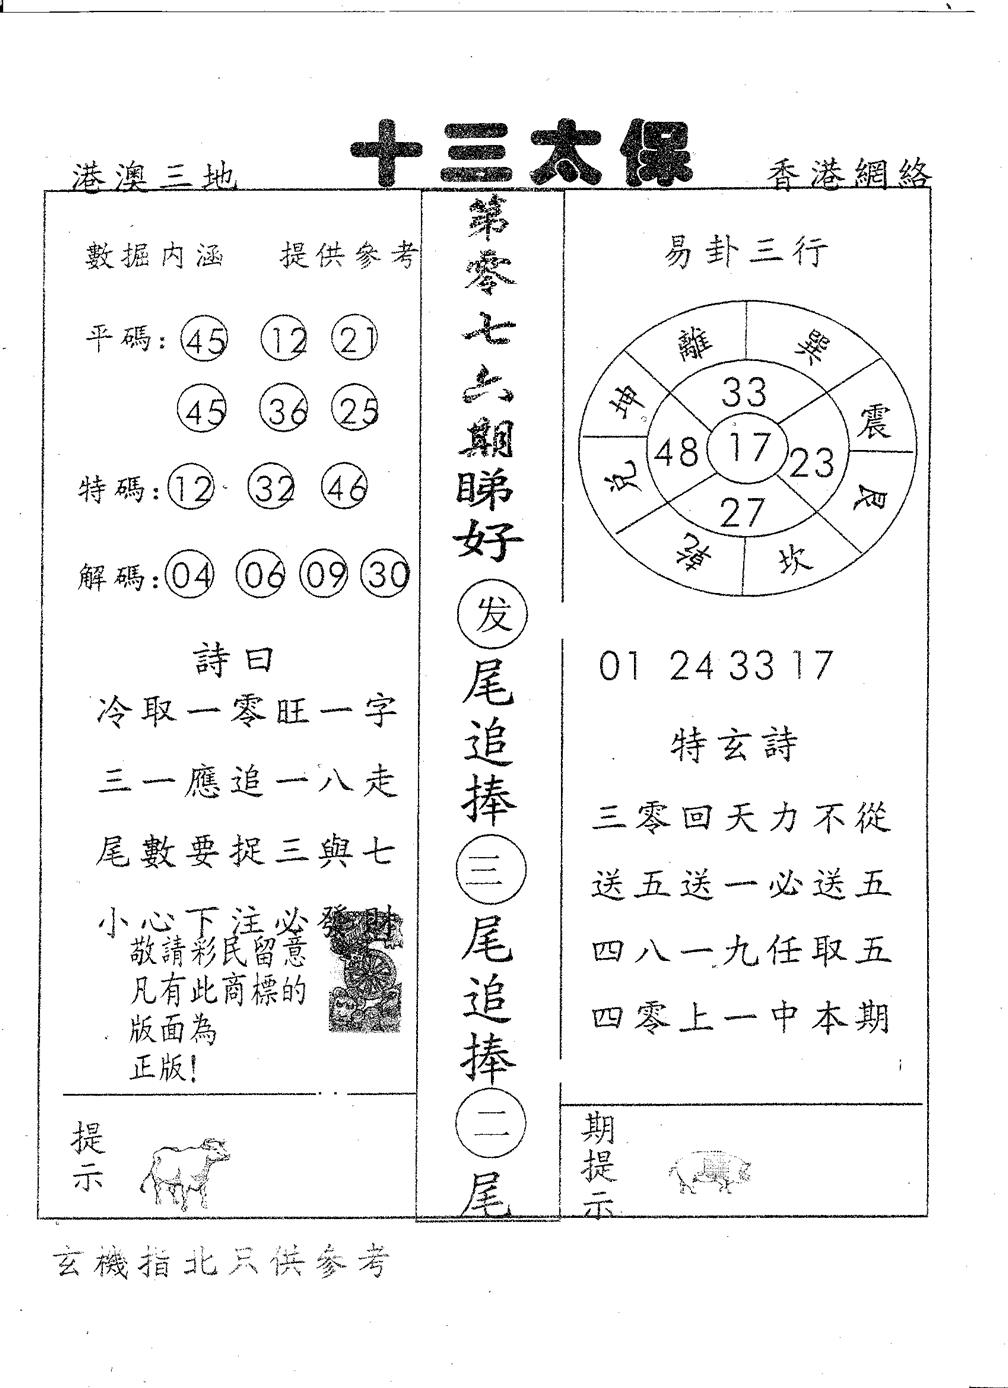 十三太保
港澳三地
香港網絡
數掘内涵 提供參考
平碼: 45 12 21
45 36 25
特碼: 12 32 46
解碼: 04 06 09 30
詩曰
冷取一零旺一字
三一應追一八走
尾數要捉三與七
小心下注必發財
敬請彩民留意
凡有此商標的
版面為
正版!
提示
第零七六期睇好发尾追捧三尾追捧二尾
易卦三行
離 巽
坤 33 震
48 17 23
兑 27 艮
乾 坎
01 24 33 17
特玄詩
三零回天力不從
送五送一必送五
四八一九任取五
四零上一中本期
期提示
玄機指北只供參考